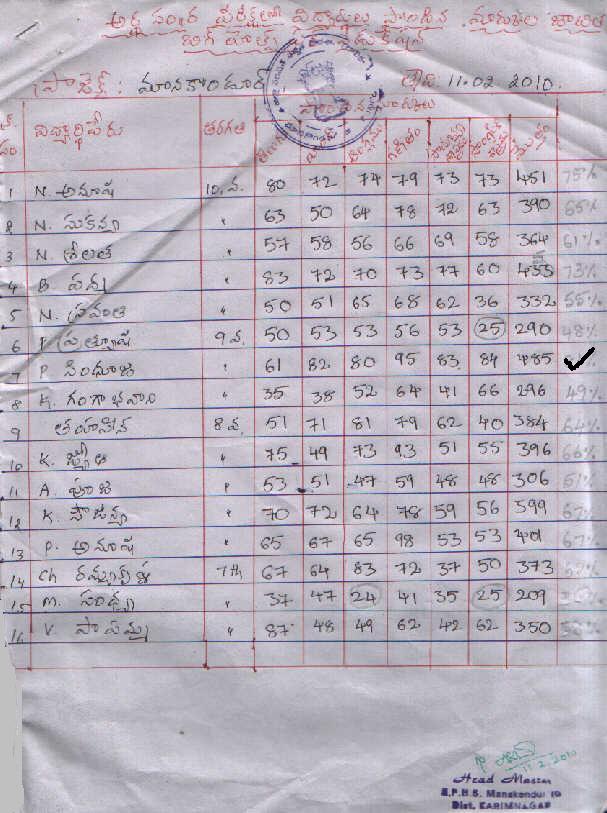 అర్ధ సంవత్సర పరీక్షలలో విద్యార్థులు సాధించిన మార్కుల జాబితా
ప్రాజెక్ట్ : మానకొండూర్ తేది: 11.02 2010.
సాధించిన మార్కులు
క్ర. సం విద్యార్థిపేరు తరగతి తెలుగు హిందీ ఆంగ్లము గణితం
1 N. అనూష 10.వ. 80 72 74 79 73 73 451 75%
2 N. సుకన్య " 63 50 64 78 72 63 390 65%
3 N. శ్రీలత " 57 58 56 66 69 58 364 61%
4 B. పద్మ " 83 72 70 73 77 60 435 73%
5 N. స్రవంతి " 50 51 65 68 62 36 332 55%
6 P. ప్రత్యూష 9వ. 50 53 53 56 53 25 290 48%
7 P. సింధూజ " 61 82 80 95 83 84 485
8 K. గంగాభవాని " 35 38 52 64 41 66 296 49%
9 తహసీన 8వ. 51 71 81 79 62 40 384 64%
10 K. జ్యోతి " 75 49 73 93 51 55 396 66%
11 A. పూజ " 53 51 47 59 48 48 306 51%
12 K. సౌజన్య " 70 72 64 78 59 56 399 67%
13 P. అనూష " 65 67 65 98 53 53 401 67%
14 Ch రమ్యశ్రీ 7th 67 64 83 72 37 50 373 62%
15 M. సంధ్య " 37 47 24 41 35 25 209
16 V. పావని " 87 48 49 62 42 62 350
11.2.2010
Head Master
Z.P.H.S. Manakondur
Dist. KARIMNAGAR